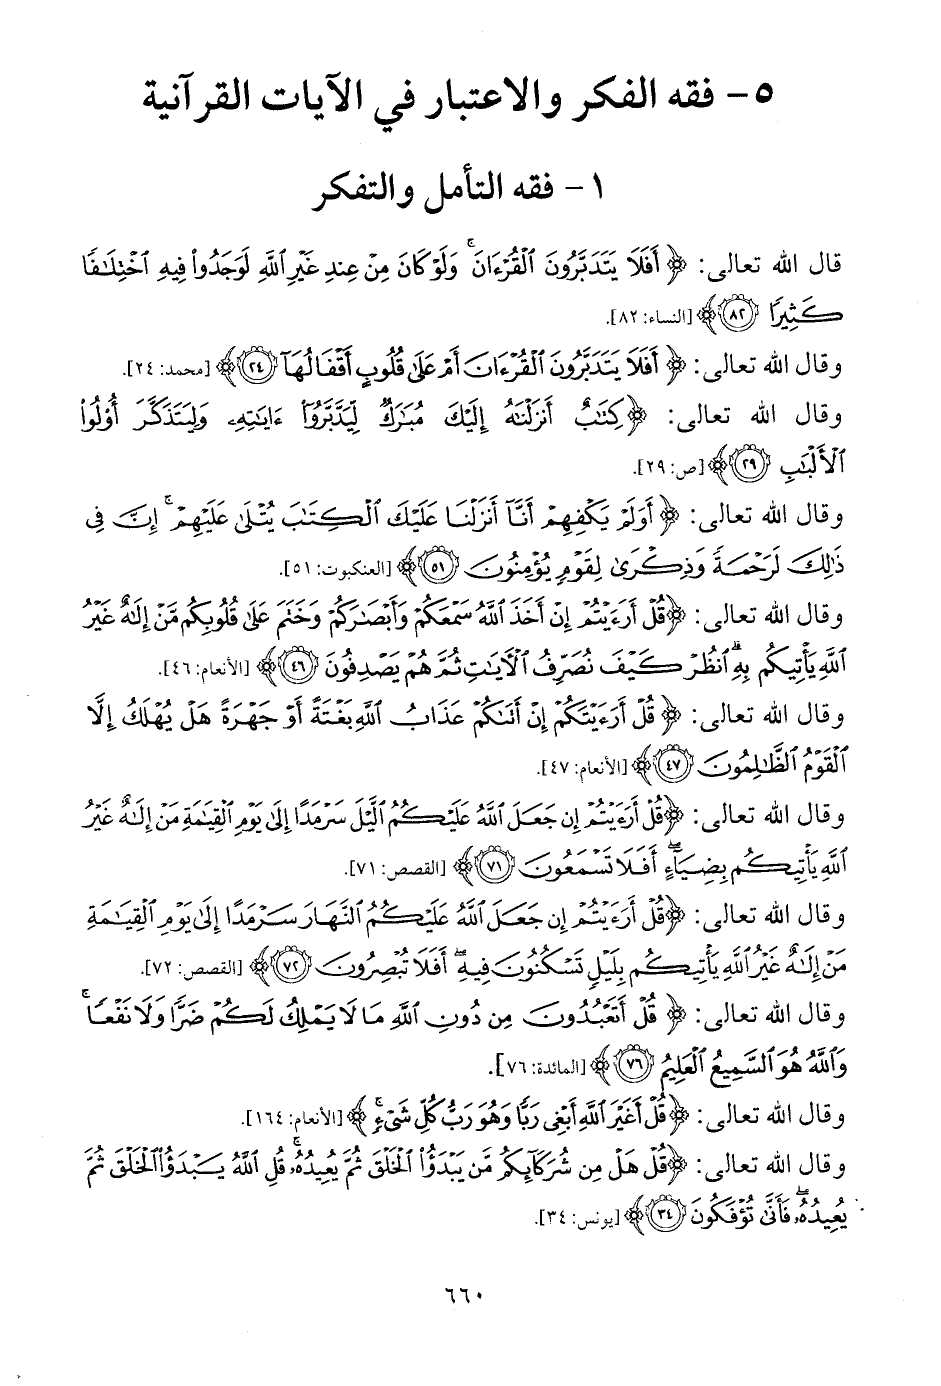 ٥- فقه الفكر والاعتبار في الآيات القرآنية
١- فقه التأمل والتفكر
قال الله تعالى: ﴿أَفَلَا يَتَدَبَّرُونَ ٱلْقُرْءَانَ ۚ وَلَوْ كَانَ مِنْ عِندِ غَيْرِ ٱللَّهِ لَوَجَدُوا۟ فِيهِ ٱخْتِلَـٰفًا
كَثِيرًا ٨٢﴾ [النساء: ٨٢].
وقال الله تعالى: ﴿أَفَلَا يَتَدَبَّرُونَ ٱلْقُرْءَانَ أَمْ عَلَىٰ قُلُوبٍ أَقْفَالُهَآ ٢٤﴾ [محمد: ٢٤].
وقال الله تعالى: ﴿كِتَـٰبٌ أَنزَلْنَـٰهُ إِلَيْكَ مُبَـٰرَكٌ لِّيَدَّبَّرُوٓا۟ ءَايَـٰتِهِۦ وَلِيَتَذَكَّرَ أُو۟لُوا۟
ٱلْأَلْبَـٰبِ ٢٩﴾ [ص: ٢٩].
وقال الله تعالى: ﴿أَوَلَمْ يَكْفِهِمْ أَنَّآ أَنزَلْنَا عَلَيْكَ ٱلْكِتَـٰبَ يُتْلَىٰ عَلَيْهِمْ ۚ إِنَّ فِى
ذَٰلِكَ لَرَحْمَةً وَذِكْرَىٰ لِقَوْمٍ يُؤْمِنُونَ ٥١﴾ [العنكبوت: ٥١].
وقال الله تعالى: ﴿قُلْ أَرَءَيْتُمْ إِنْ أَخَذَ ٱللَّهُ سَمْعَكُمْ وَأَبْصَـٰرَكُمْ وَخَتَمَ عَلَىٰ قُلُوبِكُم مَّنْ إِلَـٰهٌ غَيْرُ
ٱللَّهِ يَأْتِيكُم بِهِ ۗ ٱنظُرْ كَيْفَ نُصَرِّفُ ٱلْـَٔايَـٰتِ ثُمَّ هُمْ يَصْدِفُونَ ٤٦﴾ [الأنعام: ٤٦].
وقال الله تعالى: ﴿قُلْ أَرَءَيْتَكُمْ إِنْ أَتَىٰكُمْ عَذَابُ ٱللَّهِ بَغْتَةً أَوْ جَهْرَةً هَلْ يُهْلَكُ إِلَّا
ٱلْقَوْمُ ٱلظَّـٰلِمُونَ ٤٧﴾ [الأنعام: ٤٧].
وقال الله تعالى: ﴿قُلْ أَرَءَيْتُمْ إِن جَعَلَ ٱللَّهُ عَلَيْكُمُ ٱلَّيْلَ سَرْمَدًا إِلَىٰ يَوْمِ ٱلْقِيَـٰمَةِ مَنْ إِلَـٰهٌ غَيْرُ
ٱللَّهِ يَأْتِيكُم بِضِيَآءٍ ۖ أَفَلَا تَسْمَعُونَ ٧١﴾ [القصص: ٧١].
وقال الله تعالى: ﴿قُلْ أَرَءَيْتُمْ إِن جَعَلَ ٱللَّهُ عَلَيْكُمُ ٱلنَّهَارَ سَرْمَدًا إِلَىٰ يَوْمِ ٱلْقِيَـٰمَةِ
مَنْ إِلَـٰهٌ غَيْرُ ٱللَّهِ يَأْتِيكُم بِلَيْلٍ تَسْكُنُونَ فِيهِ ۖ أَفَلَا تُبْصِرُونَ ٧٢﴾ [القصص: ٧٢].
وقال الله تعالى: ﴿قُلْ أَتَعْبُدُونَ مِن دُونِ ٱللَّهِ مَا لَا يَمْلِكُ لَكُمْ ضَرًّا وَلَا نَفْعًا ۚ
وَٱللَّهُ هُوَ ٱلسَّمِيعُ ٱلْعَلِيمُ ٧٦﴾ [المائدة: ٧٦].
وقال الله تعالى: ﴿قُلْ أَغَيْرَ ٱللَّهِ أَبْغِى رَبًّا وَهُوَ رَبُّ كُلِّ شَىْءٍ ۚ﴾ [الأنعام: ١٦٤].
وقال الله تعالى: ﴿قُلْ هَلْ مِن شُرَكَآئِكُم مَّن يَبْدَؤُا۟ ٱلْخَلْقَ ثُمَّ يُعِيدُهُۥ ۚ قُلِ ٱللَّهُ يَبْدَؤُا۟ ٱلْخَلْقَ ثُمَّ
يُعِيدُهُۥ ۖ فَأَنَّىٰ تُؤْفَكُونَ ٣٤﴾ [يونس: ٣٤].
٦٦٠